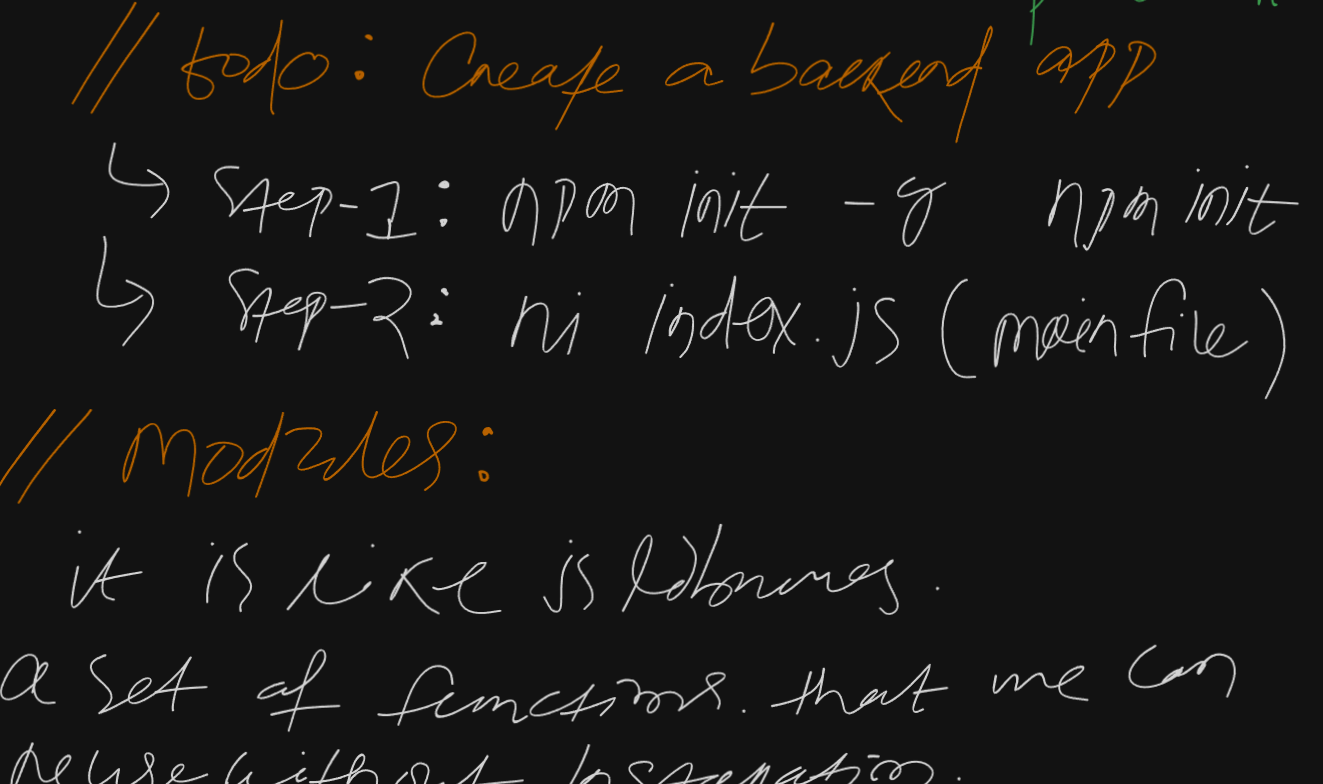 // todo: Create a backend app
↳ Step-1: npm init -y npm init
↳ Step-2: ni index.js (main file)
// Modules:
it is like js libraries.
a set of functions. that we can
reuse without